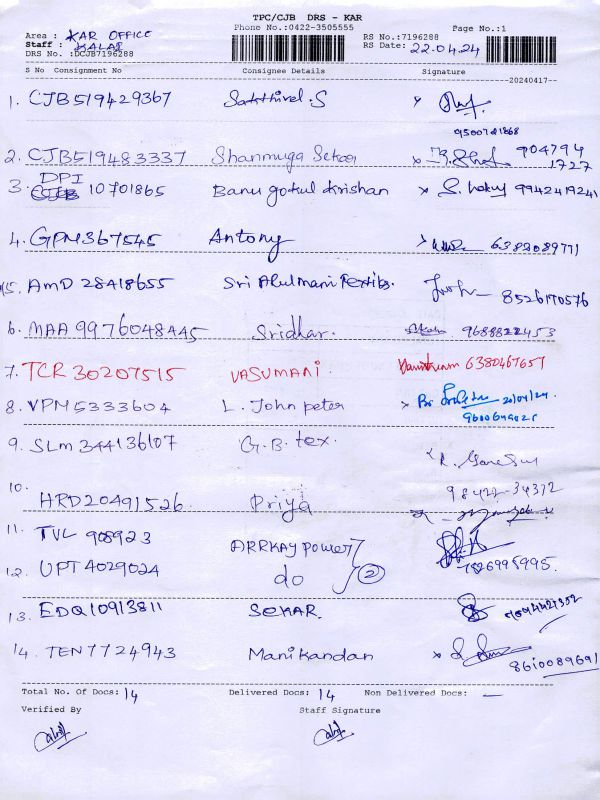 TPC/CJB DRS - KAR
Phone No.:0422-3505555 Page No.:1
Area : KAR OFFICE RS No.:7196288
Staff : KALAI RS Date: 22.04.24
DRS No. :DCJB7196288
S No Consignment No Consignee Details Signature
20240417
1. CJB519429367 Sakthivel.S
2. CJB519483337 Shanmuga Sekar 904794
1727
3. DPI 10701865 Banu gokul krishan 9942419241
4. GPM367545 Antony 6383089771
5. AMD 28418655 Sri 8526170576
6. MAA 9976048445 Sridhar. 9688822453
7. TCR 30207515 VASUMANI 6380467657
8. VPM5333604 L. John peter 20/04/24
9. SLM 344136107 G.B. tex.
10. HRD20491526 Priya 98422-34372
11. TVL 908923 ARRKAY power
12. UPT 4029024 do 2 7826995995
13. EDQ10913811 SEKAR.
14. TEN7724943 Manikandan 8610089691
Total No. Of Docs: 14 Delivered Docs: 14 Non Delivered Docs: —
Verified By Staff Signature